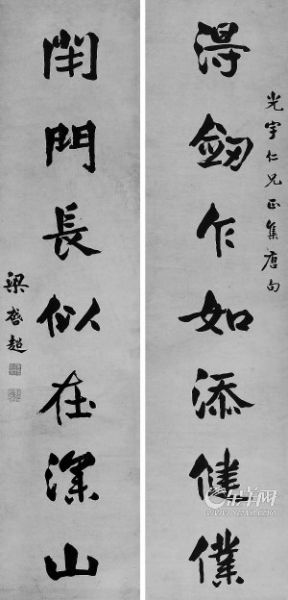 得劔乍如添健僕
光宇仁兄正集唐句
閉門長似在深山
梁啓超